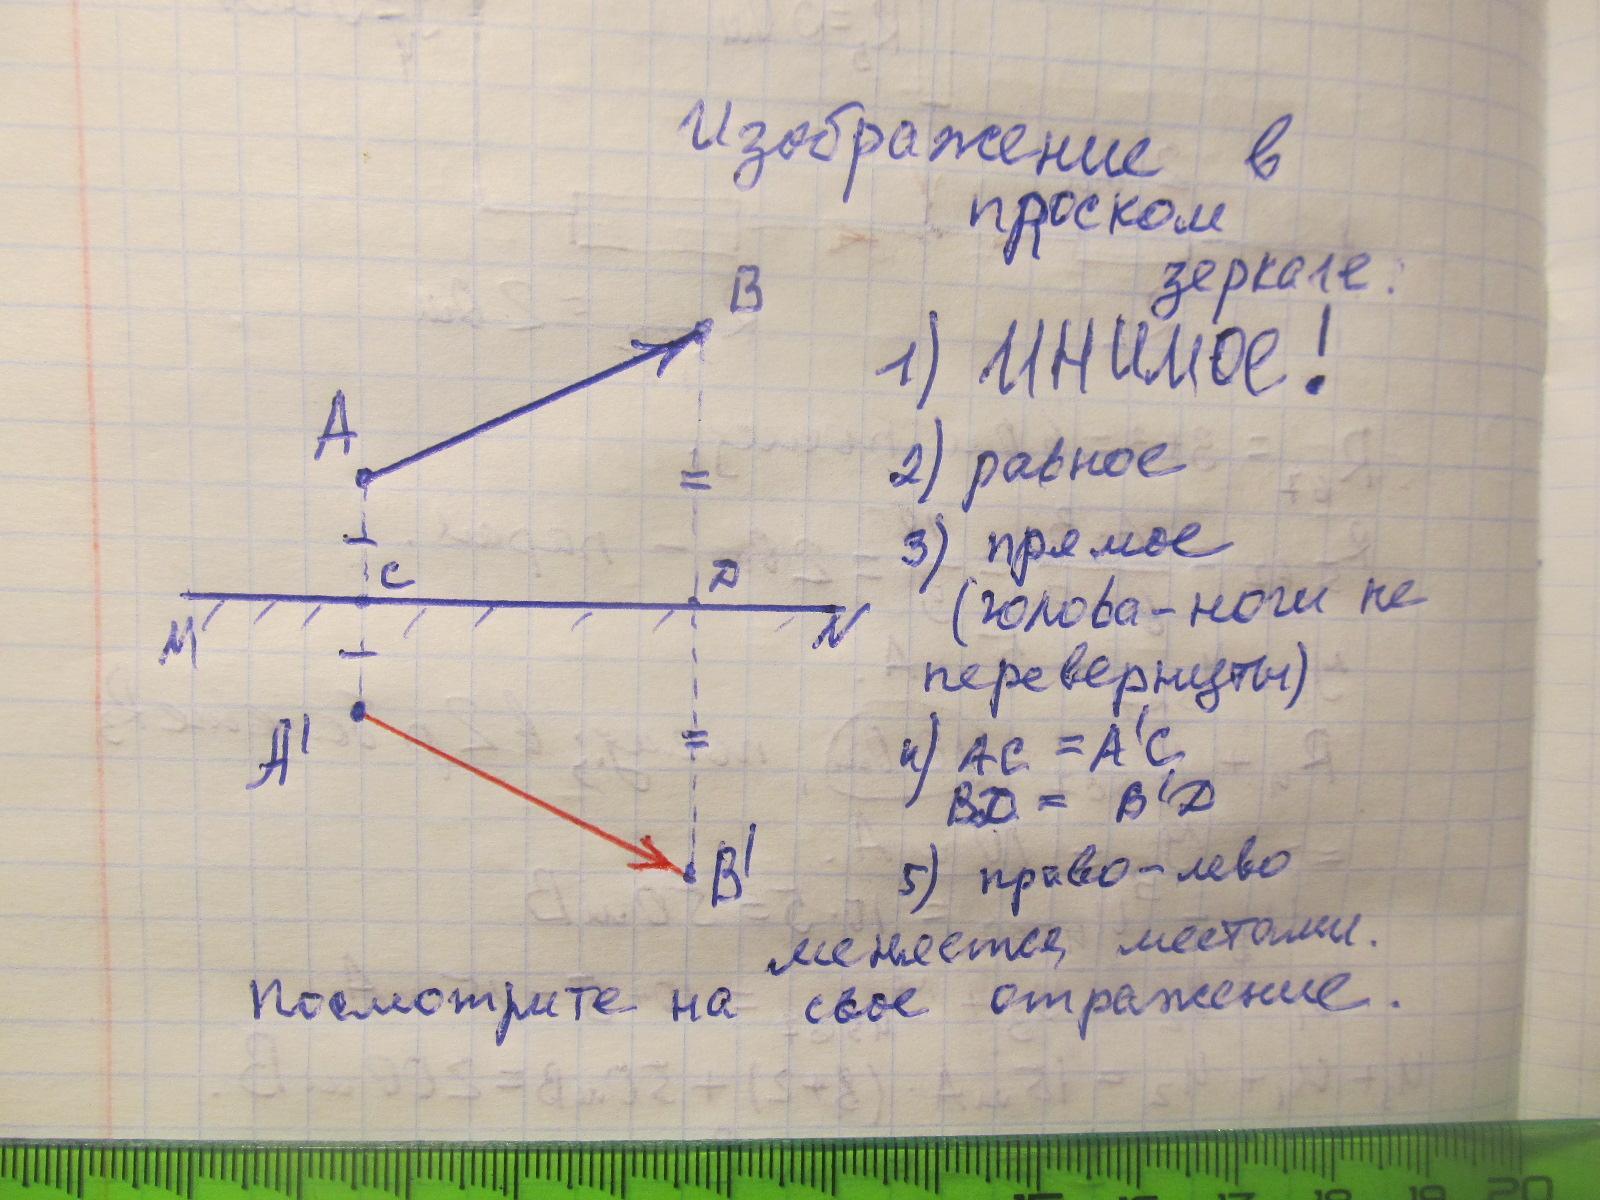 Изображение в
плоском
зеркале:
B
1) МНИМОЕ!
A
2) равное
3) прямое
C D
(голова-ноги не
M N
перевернуты)
A'
4) AC = A'C
BD = B'D
B'
5) право-лево
меняется местами.
Посмотрите на свое отражение.
15 16 17 18 19 20